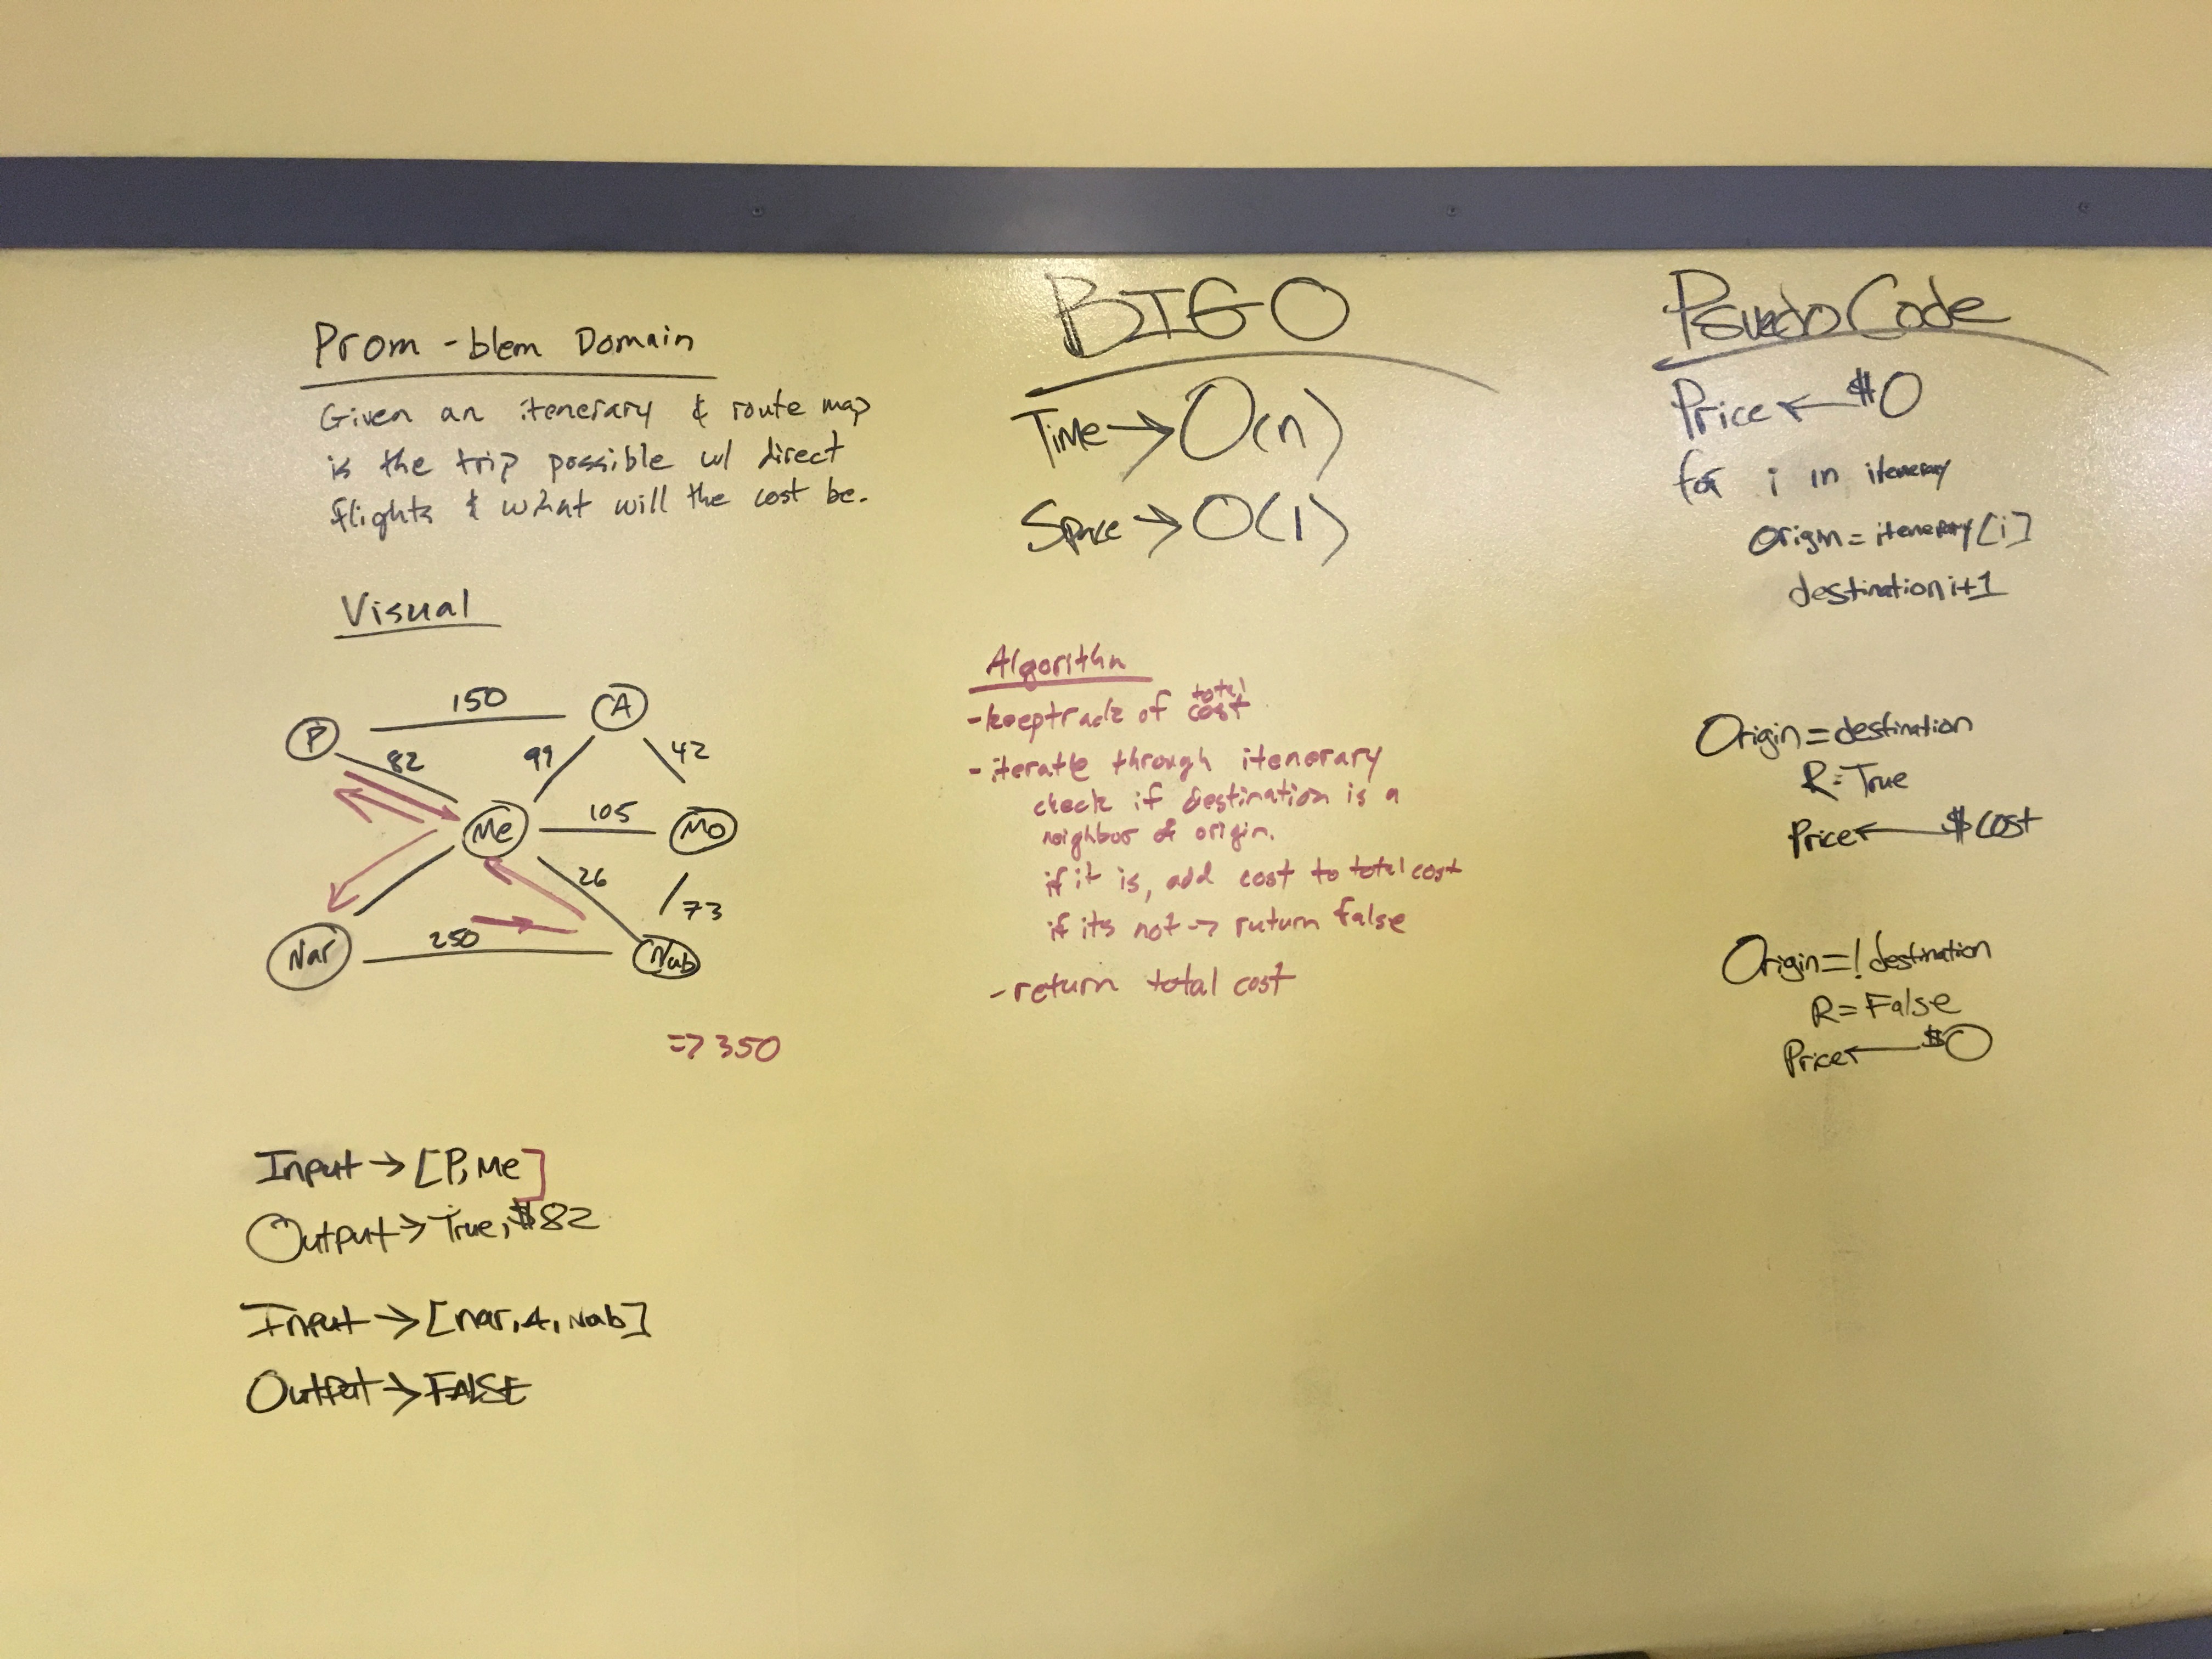 Prom-blem Domain
Given an itenerary & route map
is the trip possible w/ direct
flights & what will the cost be.
Visual
150
P
A
82
99
42
Me
105
Mo
26
73
Nar
250
Nab
=> 350
Input → [P, Me]
Output → True, $82
Input → [nar, A, Nab]
Output → FALSE
BIG O
Time → O(n)
Space → O(1)
Algorithm
- keep track of total cost
- iterate through itenerary
check if destination is a
neighbor of origin.
if it is, add cost to total cost
if its not → ruturn false
- return total cost
Psuedo Code
Price ← $0
for i in itenerary
Origin = itenerary[i]
destination i+1
Origin = destination
R = True
Price ← $ cost
Origin = ! destination
R = False
Price ← $0